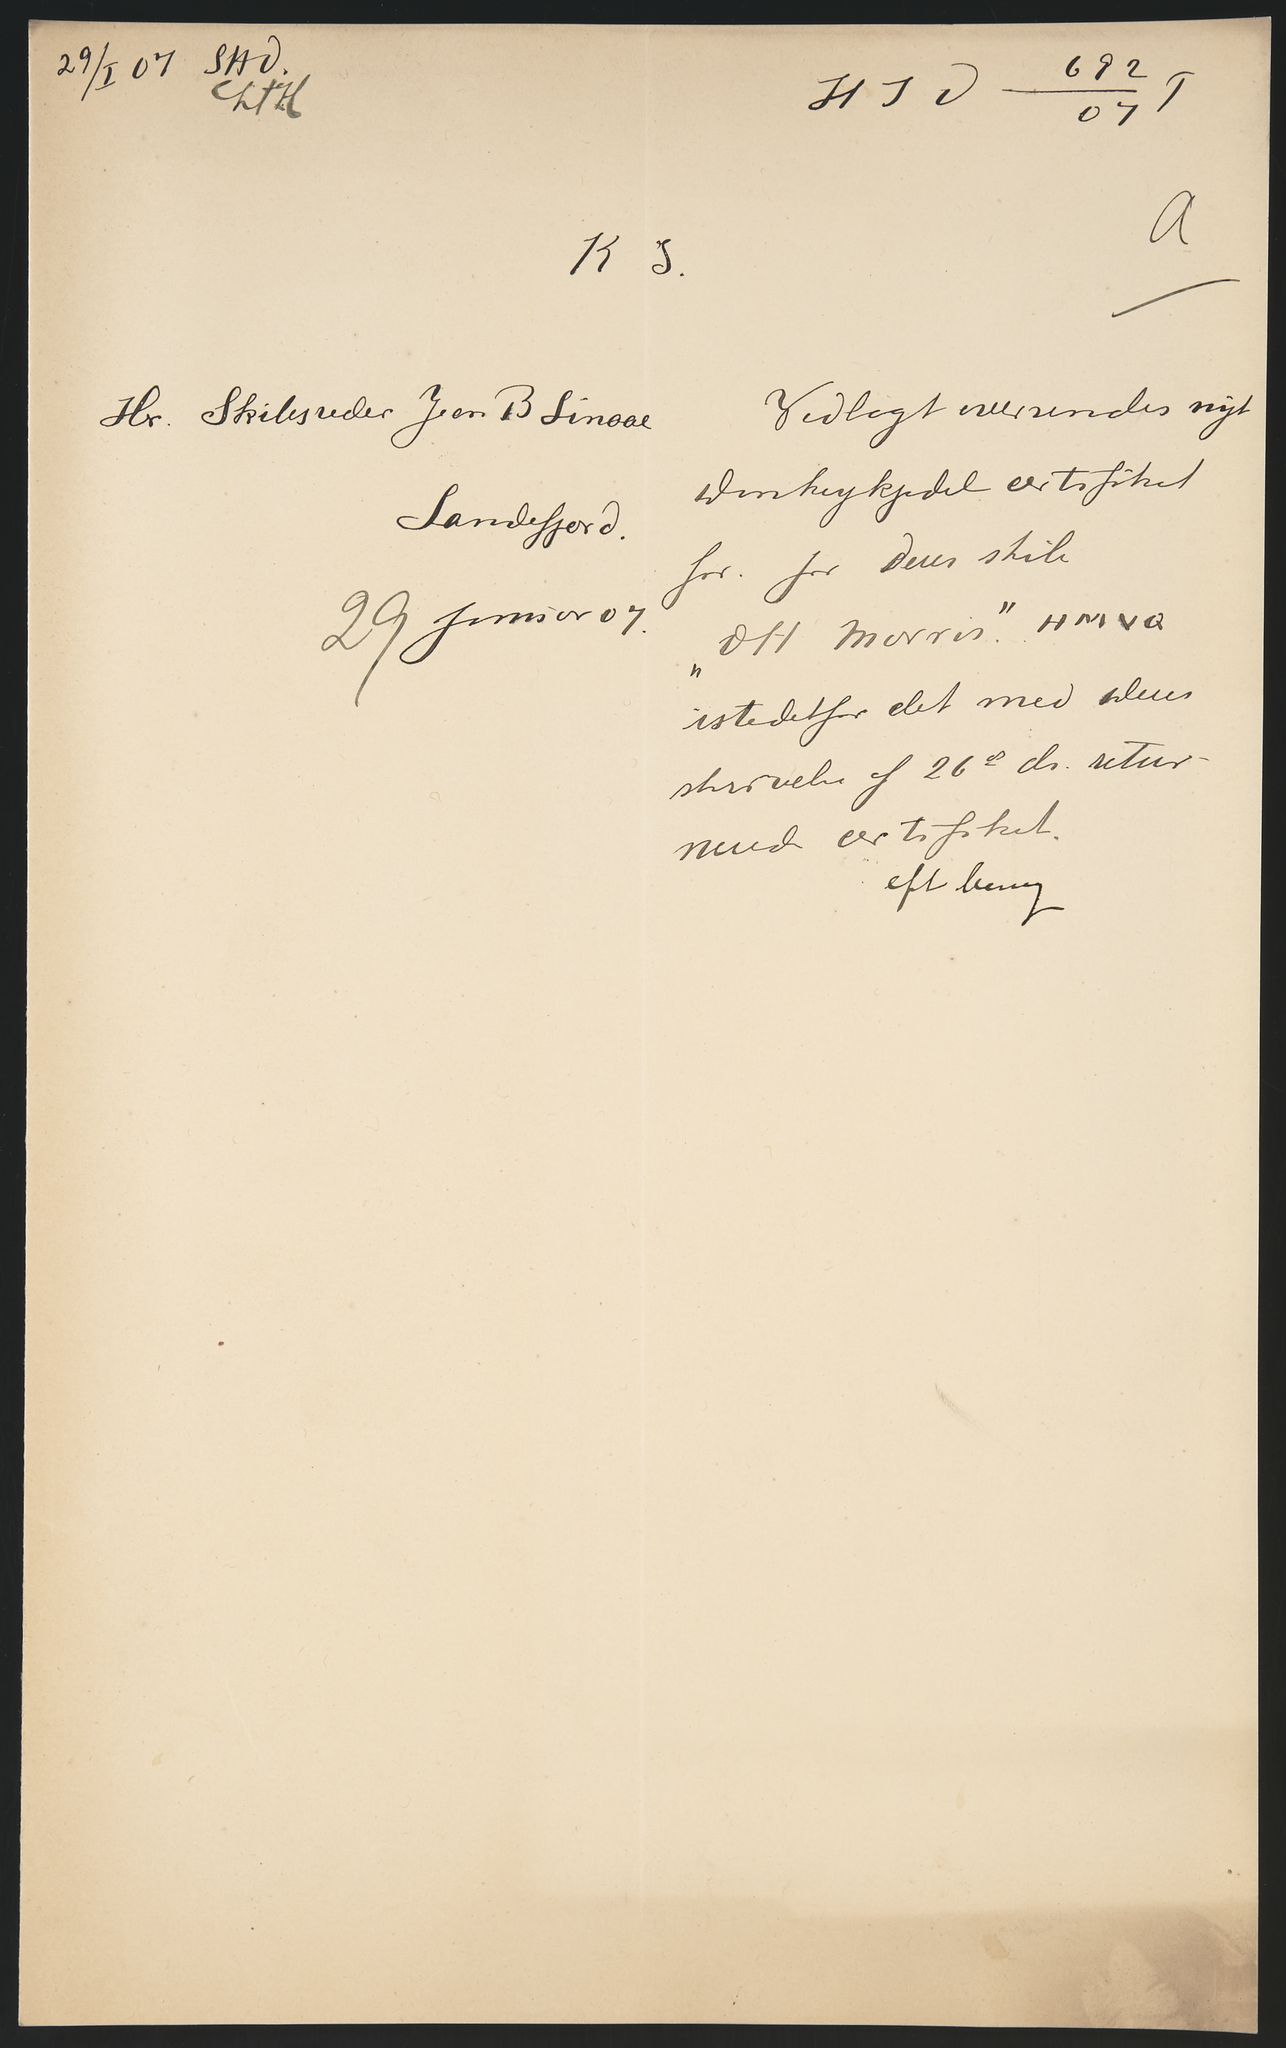 29/I 07 SHD.
HSD 692/07 T
a
K S.
Hr. Skibsreder Jean B Linaae
Sandefjord.
29 januar 07.
Vedlagt oversendes nyt
donkeykjedel certifikat
for. for Deres skib
"DH Morris". HMVQ
istedetfor det med Deres
skrivelse af 26de ds. retur-
nerede certifikat.
eft bemy